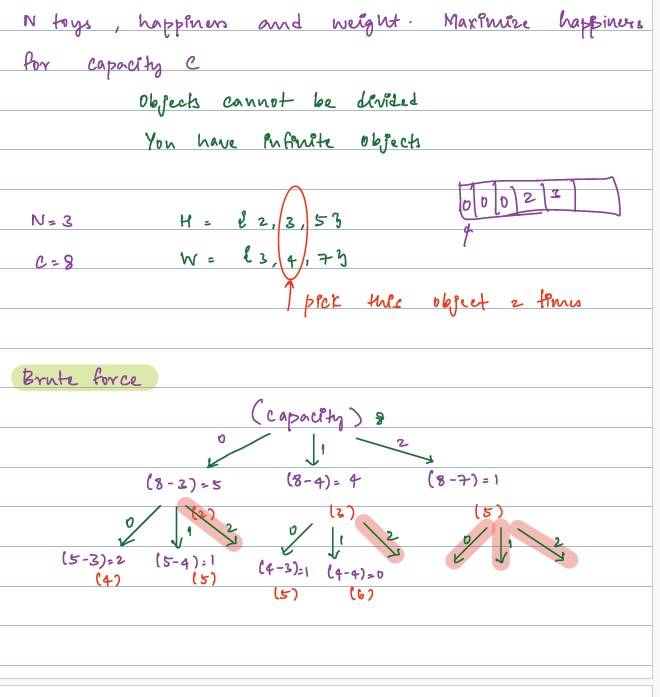 N toys, happiness and weight. Maximize happiness
for capacity C
Objects cannot be divided
You have infinite objects
0 0 0 2 3
N=3 H = {2, 3, 5}
C=8 W = {3, 4, 7}
pick this object 2 times
Brute force
(capacity) 8
0 1 2
(8-3)=5 (8-4)=4 (8-7)=1
(2) (3) (5)
0 1 2 0 1 2 0 1 2
(5-3)=2 (5-4)=1 (4-3)=1 (4-4)=0
(4) (5) (5) (6)